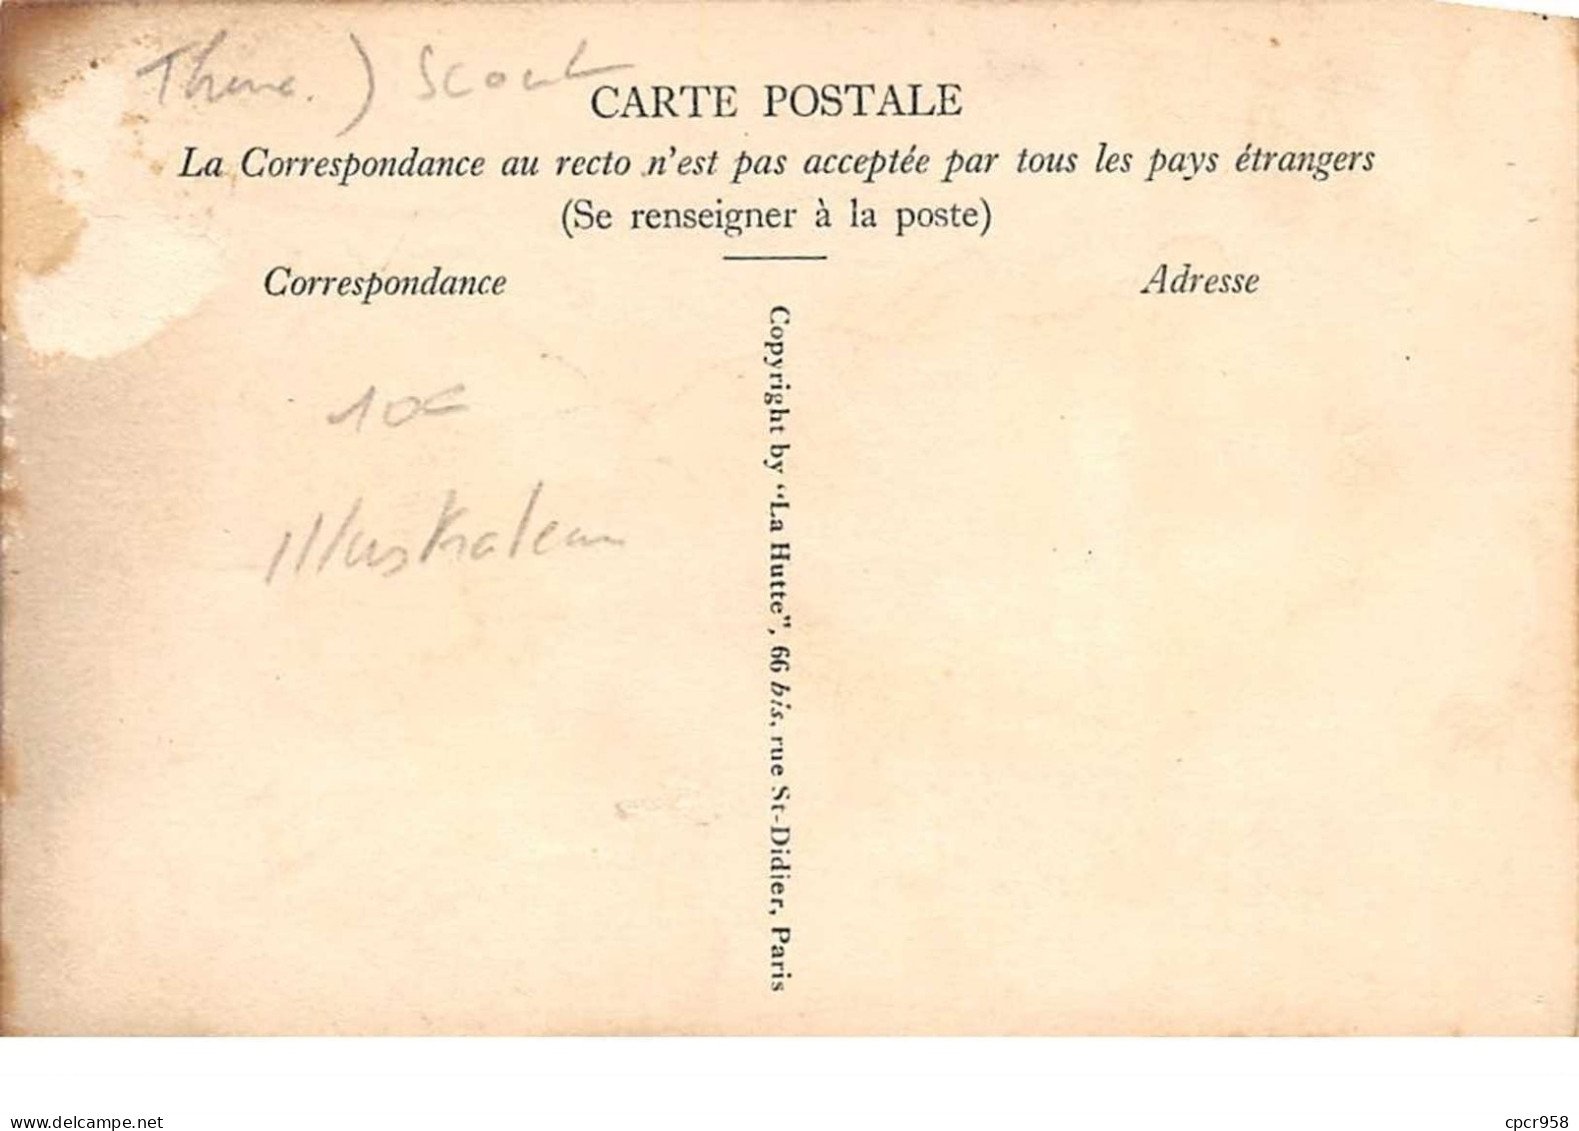 Theme ) Scout
CARTE POSTALE
La Correspondance au recto n'est pas acceptée par tous les pays étrangers
(Se renseigner à la poste)
Correspondance
Adresse
Copyright by "La Hutte", 66 bis, rue St-Didier, Paris
10€
Illustrateur
www.delcampe.net
cpcr958